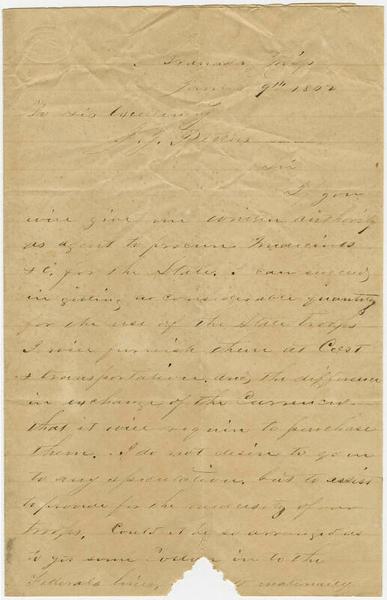 Grenada, Miss
9th 1862
To His Excellency
J. J. Pettus
Sir
If you
will give me written authority
as agent to procure Medicines
&C, for the State. I can succeed
in getting a considerable quantity
for the use of the State troops
I will furnish them at Cost
& transportation. and the difference
in exchange of the Currency
that it will require to purchase
them. I do not desire to go in
to any speculation, but to assist
to provide for the necessity of our
troops. Could it be so arranged as
to get some Cotton in to the
Federals lines, it materially